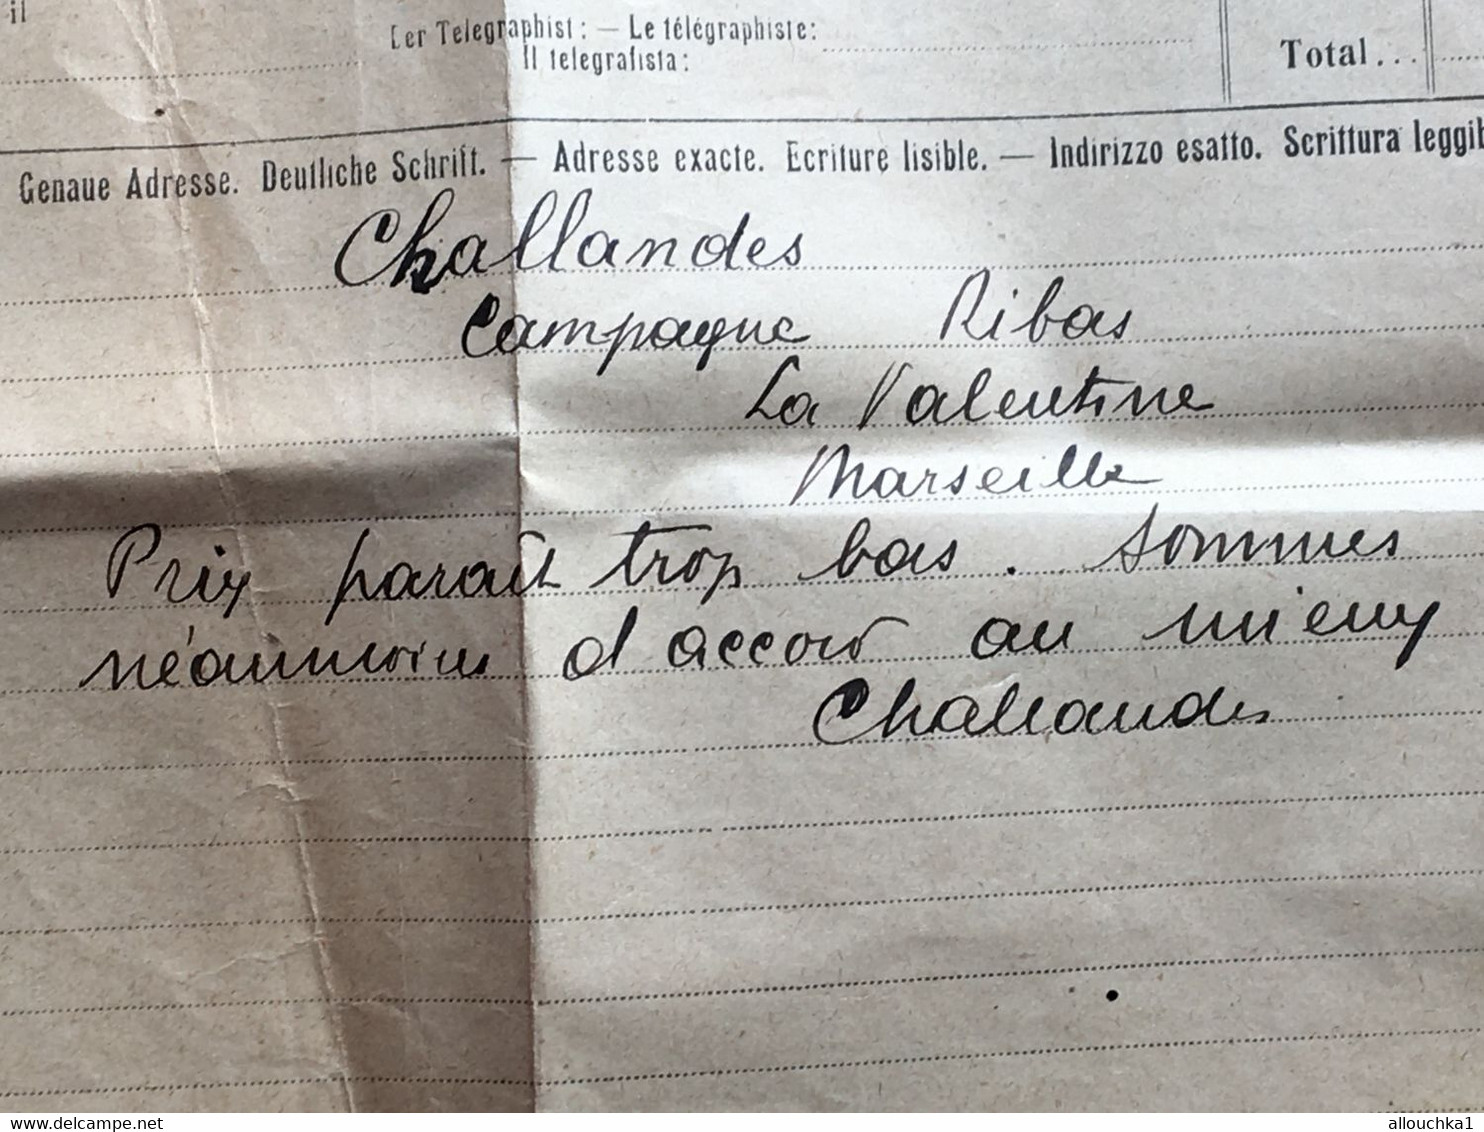 il
Der Telegraphist: — Le télégraphiste:
Il telegrafista:
Total...
Genaue Adresse. Deutliche Schrift. — Adresse exacte. Ecriture lisible. — Indirizzo esatto. Scrittura leggib
Challandes
Campagne Ribas
La Valentine
Marseille
Prix parait trop bas. Sommes
néanmoins d accord au mieux
Challandes
delcampe.net
allouchka1